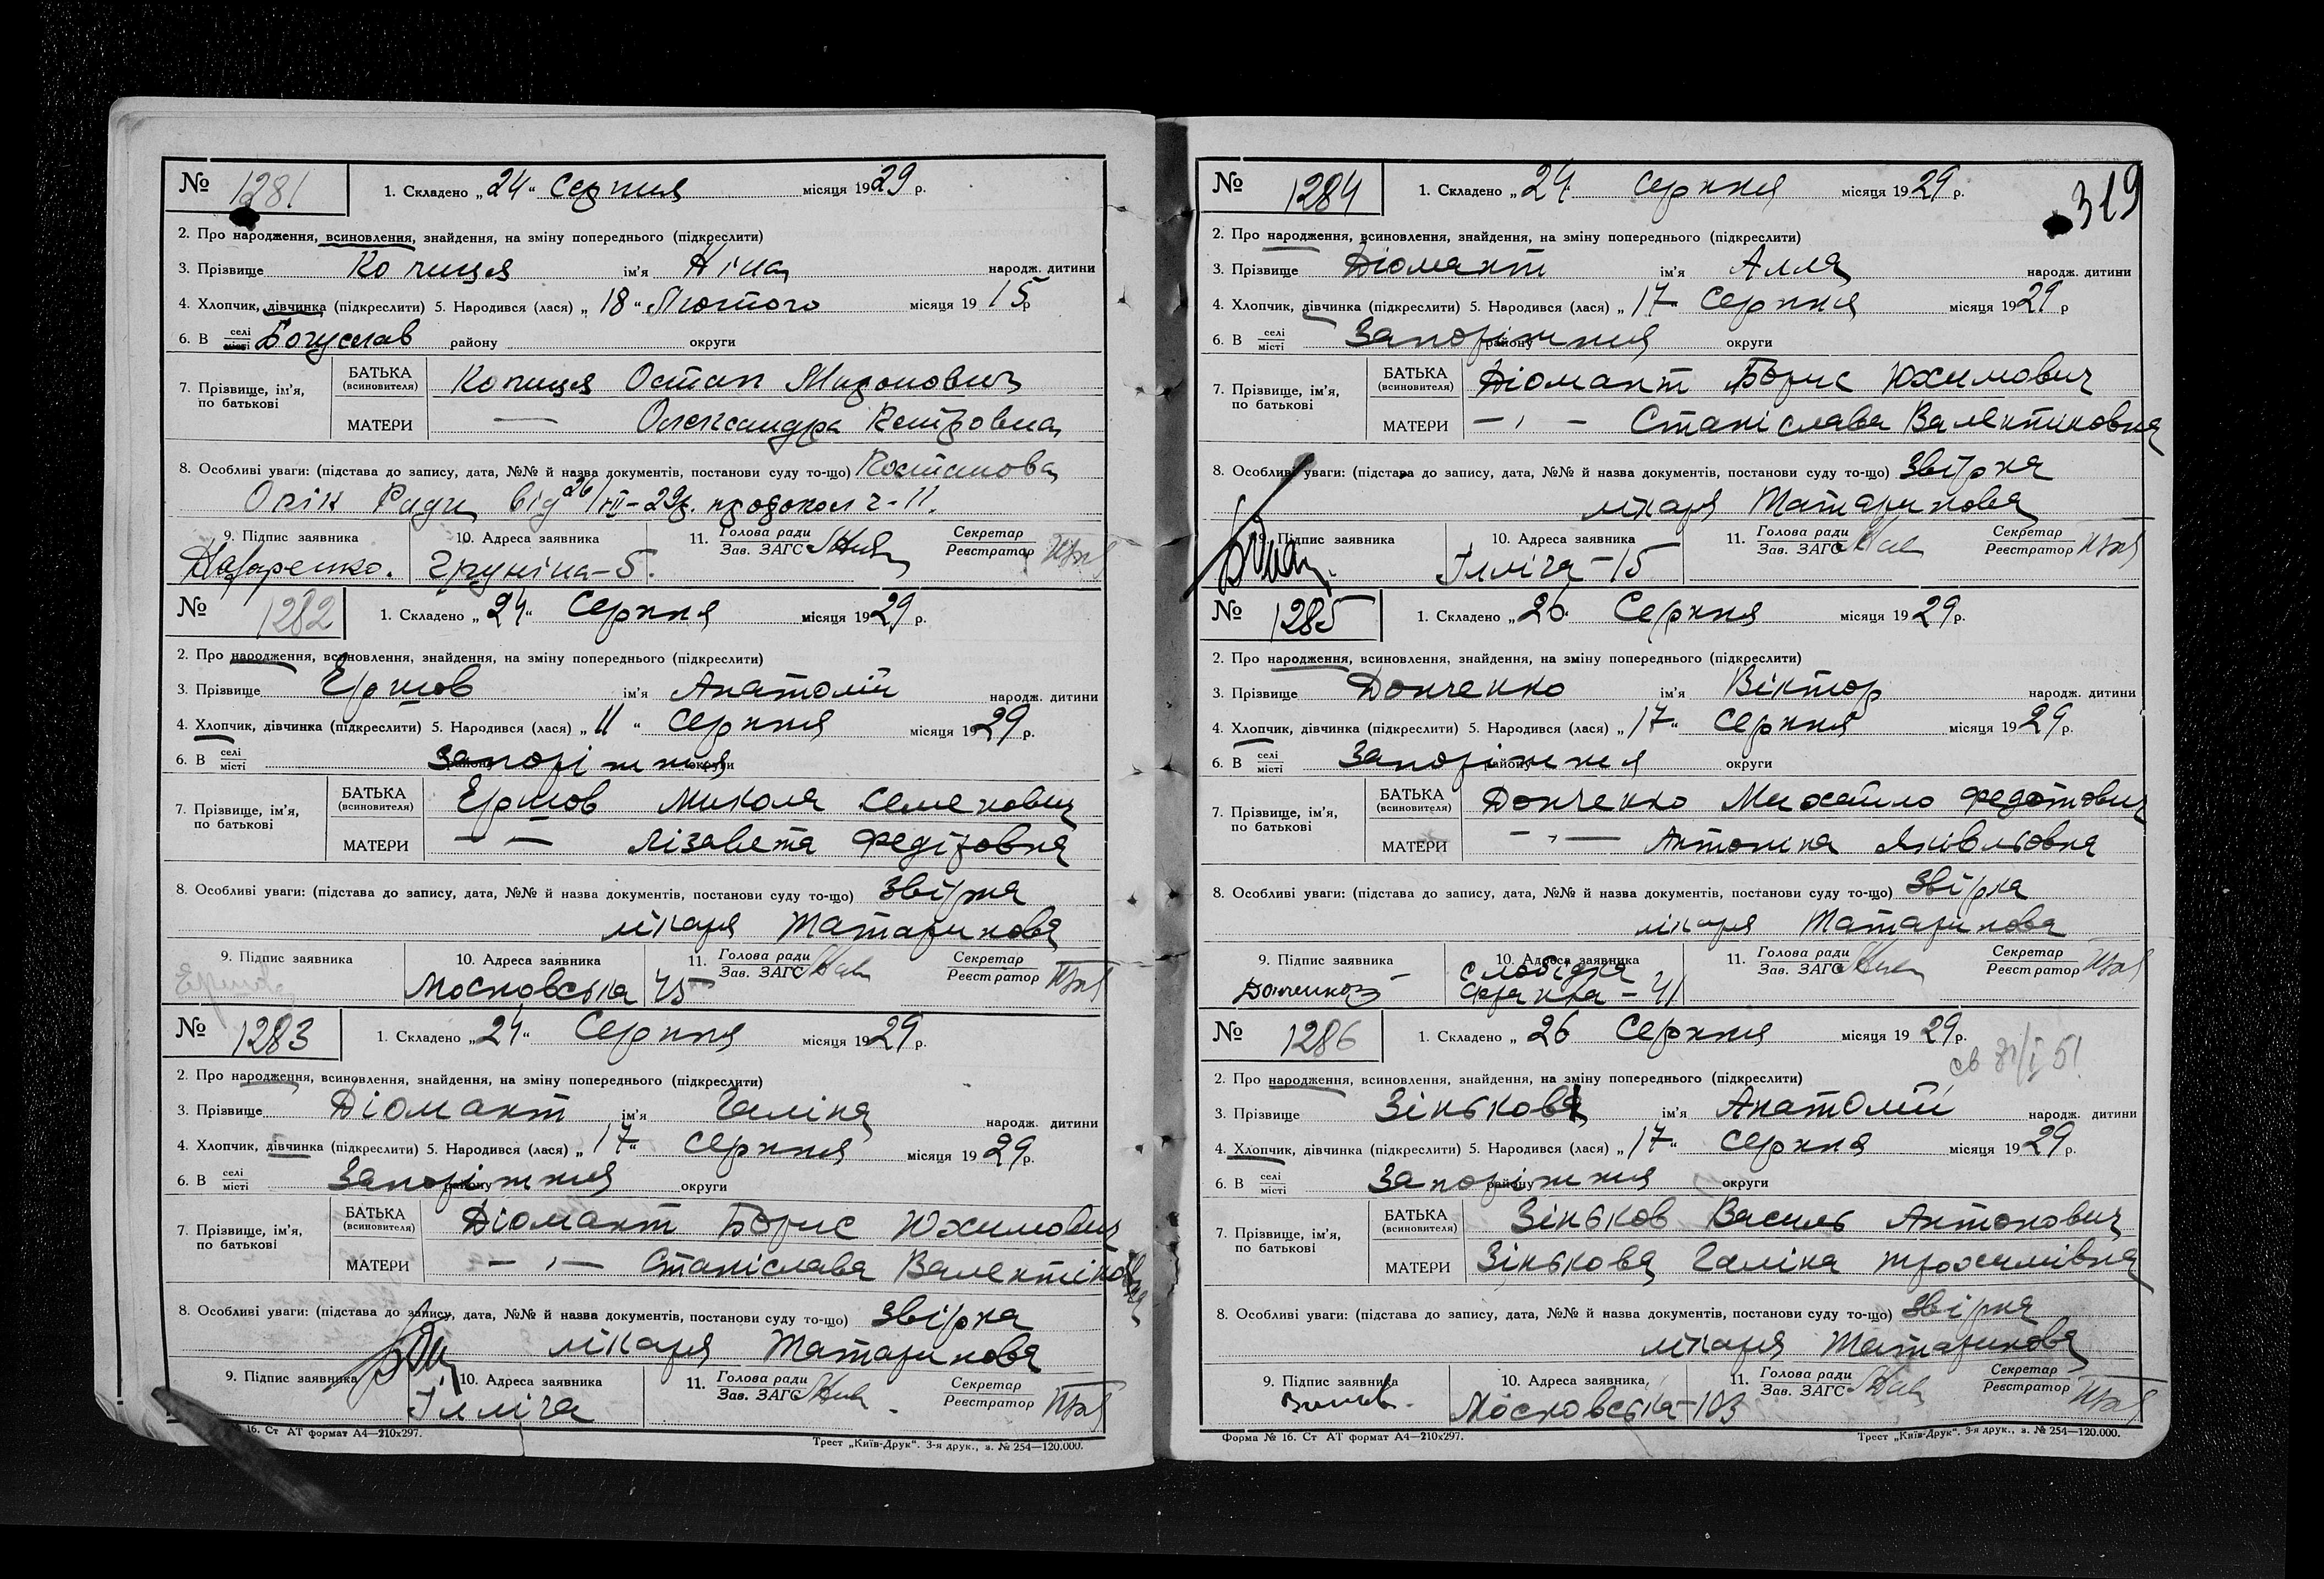 № 1281 1. Складено „24“ Серпня місяця 1929 р.
2. Про народження, всиновлення, знайдення, на зміну попереднього (підкреслити)
3. Прізвище Копиця ім'я Ніна народж. дитини
4. Хлопчик, дівчинка (підкреслити) 5. Народився (лася) „18“ Лютого місяця 1915 р
6. В селі місті Богуслав району округи
7. Прізвище, ім'я, по батькові БАТЬКА (всиновителя) Копиця Остап Миронович
МАТЕРИ — Олександра Петровна
8. Особливі уваги: (підстава до запису, дата, №№ й назва документів, постанови суду то-що) Постанова
Опік Ради від 26/VII-29р. протокол ч-11.
9. Підпис заявника 10. Адреса заявника 11. Голова ради Зав. ЗАГС Секретар Реєстратор
Назаренко. Грязнова-5.
№ 1282 1. Складено „24“ Серпня місяця 1929 р.
2. Про народження, всиновлення, знайдення, на зміну попереднього (підкреслити)
3. Прізвище Ершов ім'я Анатолій народж. дитини
4. Хлопчик, дівчинка (підкреслити) 5. Народився (лася) „11“ Серпня місяця 1929 р.
6. В селі місті Запоріжжя району округи
7. Прізвище, ім'я, по батькові БАТЬКА (всиновителя) Ершов Микола Семенович
МАТЕРИ — — Лізавета Федіровна
8. Особливі уваги: (підстава до запису, дата, №№ й назва документів, постанови суду то-що) Звірка
лікаря Татаринова
9. Підпис заявника 10. Адреса заявника 11. Голова ради Зав. ЗАГС Секретар Реєстратор
Ершов Московська 45
№ 1283 1. Складено „24“ Серпня місяця 1929 р.
2. Про народження, всиновлення, знайдення, на зміну попереднього (підкреслити)
3. Прізвище Діомант ім'я Галіна народж. дитини
4. Хлопчик, дівчинка (підкреслити) 5. Народився (лася) „17“ Серпня місяця 1929 р.
6. В селі місті Запоріжжя району округи
7. Прізвище, ім'я, по батькові БАТЬКА (всиновителя) Діомант Борис Юхимович
МАТЕРИ — „ — Станіслава Валентіновна
8. Особливі уваги: (підстава до запису, дата, №№ й назва документів, постанови суду то-що) Звірка
лікаря Татаринова
9. Підпис заявника 10. Адреса заявника 11. Голова ради Зав. ЗАГС Секретар Реєстратор
Ілліча
№ 16. Ст АТ формат А4—210х297. Трест „Київ-Друк“. 3-я друк., з. № 254—120.000.
319
№ 1284 1. Складено „24“ Серпня місяця 1929 р.
2. Про народження, всиновлення, знайдення, на зміну попереднього (підкреслити)
3. Прізвище Діомант ім'я Алла народж. дитини
4. Хлопчик, дівчинка (підкреслити) 5. Народився (лася) „17 Серпня місяця 1929 р
6. В селі місті Запоріжжя району округи
7. Прізвище, ім'я, по батькові БАТЬКА (всиновителя) Діомант Борис Юхимович
МАТЕРИ — „ — Станіслава Валентиновна
8. Особливі уваги: (підстава до запису, дата, №№ й назва документів, постанови суду то-що) Звірка
лікаря Татаринова
9. Підпис заявника 10. Адреса заявника 11. Голова ради Зав. ЗАГС Секретар Реєстратор
Ілліча-15
№ 1285 1. Складено „26“ Серпня місяця 1929 р.
2. Про народження, всиновлення, знайдення, на зміну попереднього (підкреслити)
3. Прізвище Донченко ім'я Віктор народж. дитини
4. Хлопчик, дівчинка (підкреслити) 5. Народився (лася) „17“ Серпня місяця 1929 р.
6. В селі місті Запоріжжя району округи
7. Прізвище, ім'я, по батькові БАТЬКА (всиновителя) Донченко Михайло Федотович
МАТЕРИ — „ — Антоніна Яківльовна
8. Особливі уваги: (підстава до запису, дата, №№ й назва документів, постанови суду то-що) Звірка
лікаря Татаринова
9. Підпис заявника 10. Адреса заявника 11. Голова ради Зав. ЗАГС Секретар Реєстратор
Донченко Слобідка Франка-41
№ 1286 1. Складено „26 Серпня місяця 1929 р.
св 31/I 51
2. Про народження, всиновлення, знайдення, на зміну попереднього (підкреслити)
3. Прізвище Зіньков ім'я Анатолій народж. дитини
4. Хлопчик, дівчинка (підкреслити) 5. Народився (лася) „17“ Серпня місяця 1929 р.
6. В селі місті Запоріжжя району округи
7. Прізвище, ім'я, по батькові БАТЬКА (всиновителя) Зіньков Василь Антонович
МАТЕРИ Зінькова Галіна Трохимівна
8. Особливі уваги: (підстава до запису, дата, №№ й назва документів, постанови суду то-що) Звірка
лікаря Татаринова
9. Підпис заявника 10. Адреса заявника 11. Голова ради Зав. ЗАГС Секретар Реєстратор
Московська-103
Форма № 16. Ст АТ формат А4—210х297. Трест „Київ-Друк“. 3-я друк., з. № 254—120.000.